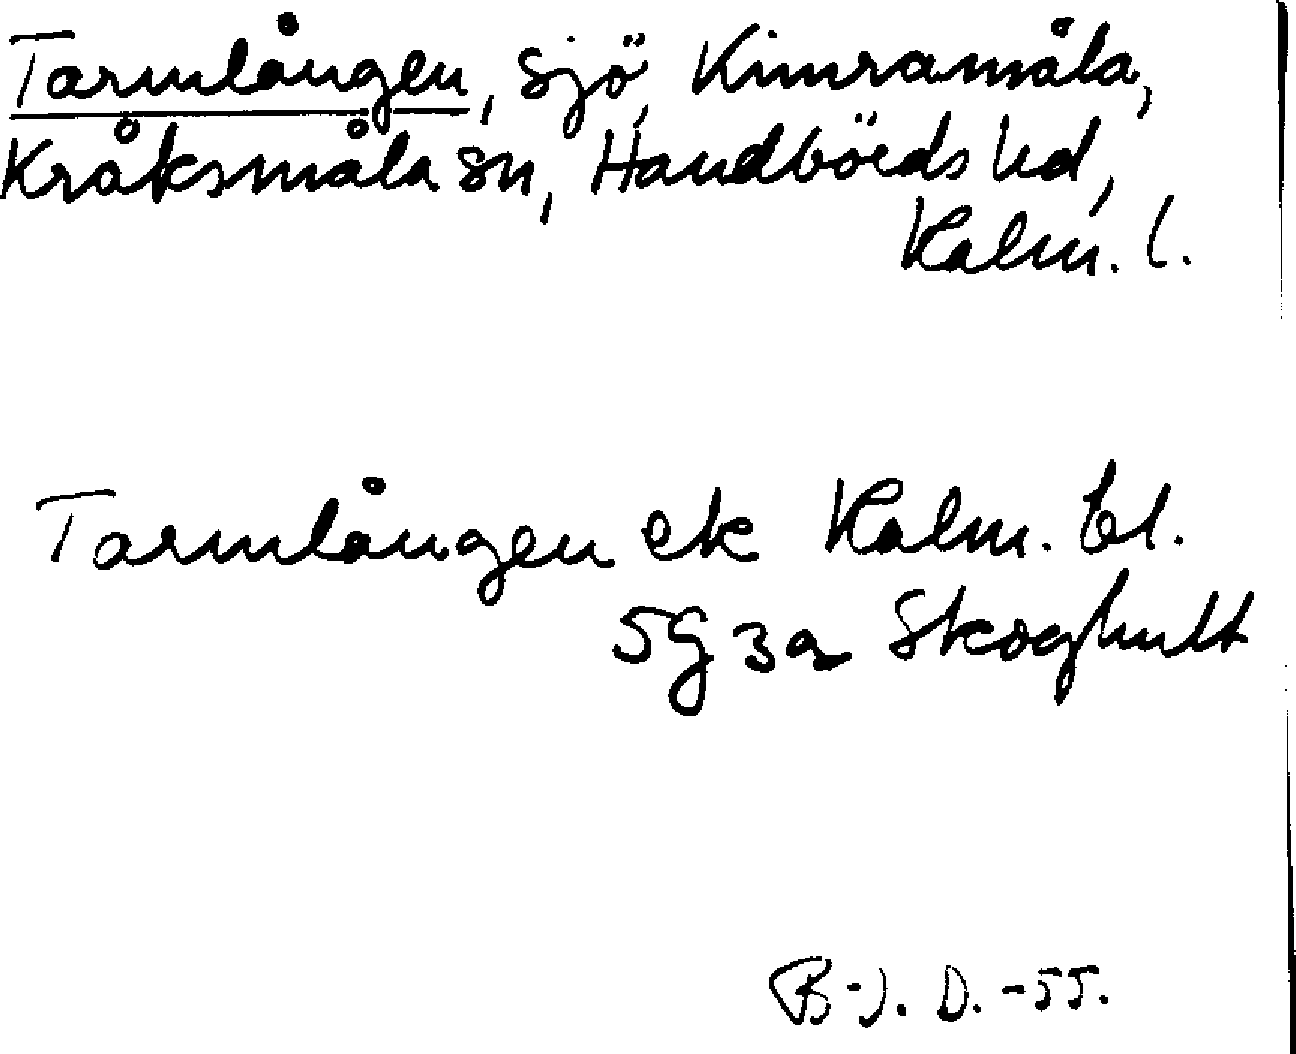 Tarmlången, sjö, Kimramåla,
Kråksmåla sn, Handbörds hd,
Kalm. l.
Tarmlången ek Kalm. bl.
5g 3a Skoghult
B-J. D. -55.